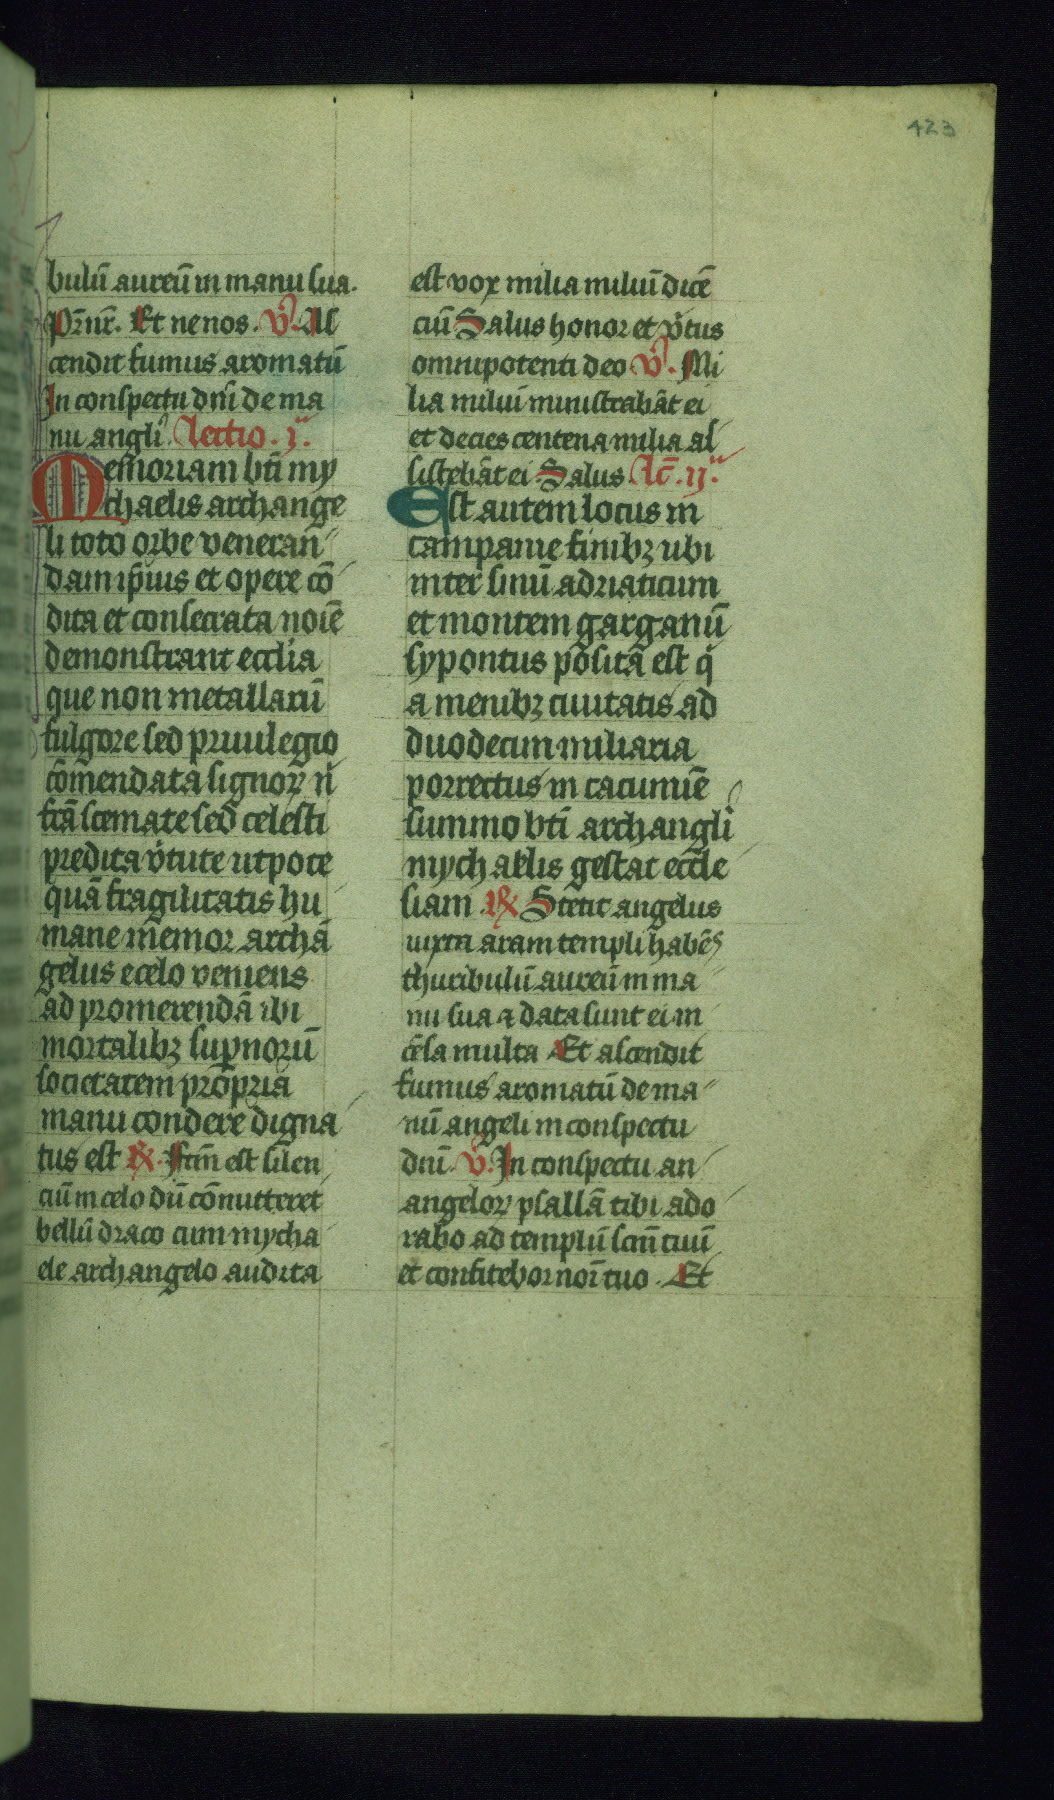 423
bulū aureū in manu sua.
Pr̄ nr̄. Et ne nos. v̄. As
cendit fumus aromatū
In conspectu dn̄i de ma
nu angli. Lectio .j.ª
Memoriam bt̄i my
chaelis archange
li toto orbe veneran
dam ip̄ius et opere cō
dita et consecrata noīe
demonstrant eccl̄ia
que non metallarū
fulgore sed priuilegio
cōmendata signoꝝ n̄
frā scemate sed celesti
predita v̄tute utpote
quā fragilitatis hu
mane memor archā
gelus e celo veniens
ad promerendā ibi
mortalibꝫ sup̄norū
societatem propriā
manu condere digna
tus est ℟. Fc̄m est silen
ciū in celo dū cōmitteret
bellū draco cum mycha
ele archangelo audita
est vox milia miliū dicē
ciū Salus honor et v̄tus
omnipotenti deo v̄. Mi
lia miliū ministrabāt ei
et decies centena milia as
sistebāt ei Salus. Lc̄. ij.ª
Est autem locus in
campanie finibꝫ ubi
inter sinū adriaticum
et montem garganū
sypontus posita est q̄
a menibꝫ ciuitatis ad
duodecim miliaria
porrectus in cacumīe
summo bt̄i archangli
mychaelis gestat eccle
siam ℟ Stetit angelus
iuxta aram templi habēs
thuribulū aureū in ma
nu sua ⁊ data sunt ei in
cēsa multa Et ascendit
fumus aromatū de ma
nū angeli in conspectu
dn̄i. v̄. In conspectu an
angeloꝝ psallā tibi ado
rabo ad templū scm̄ tuū
et confitebor noī tuo. Et